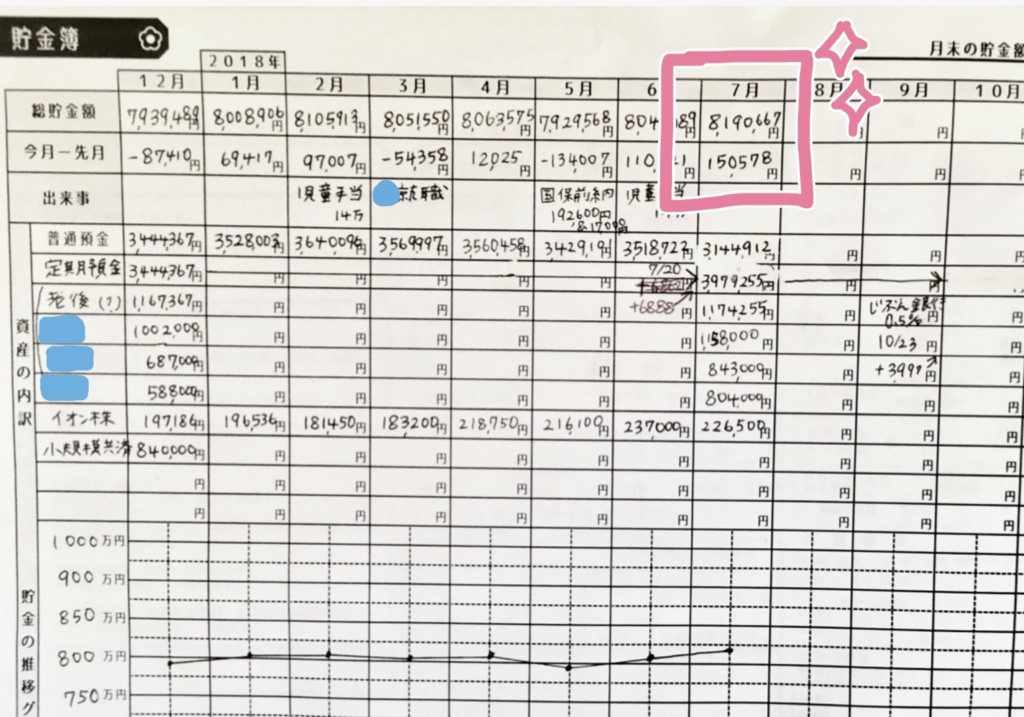 貯金簿
月末の貯金額
2018年
12月 1月 2月 3月 4月 5月 6 7月 8月 9月 10月
総貯金額 7939489円 8,008,906円 8,105,913円 8,051,550円 8,063,575円 7,929,568円 804 89円 8,190,667円 円 円
今月－先月 -87,410円 69,417円 97,007円 -54358円 12025円 -134007円 110 1円 150578円 円 円
出来事 児童手当 就職 国保前納 児童 当
14万 192600円
普通預金 3444367円 3528003円 3640094円 3569997円 3560458円 3429191円 3518722円 3144912円 円 円 円
定期預金 3444367円 円 円 円 円 円 7/20 3979255円 円 円 円
老後(?) 1,167,367円 円 円 円 円 円 +6888円 1,174,255円 円 じぶん銀行 円
0.5%
1002,000円 円 円 円 円 円 円 円 10/23 円
687,000円 円 円 円 円 円 円 843,000円 円 +3991円 円
588000円 円 円 円 円 円 円 804,000円 円 円 円
イオン株 197,186円 196,536円 181450円 183200円 218,750円 216,100円 237000円 226,500円 円 円 円
小規模共済 840,000円 円 円 円 円 円 円 円 円 円 円
円 円 円 円 円 円 円 円 円 円 円
円 円 円 円 円 円 円 円 円 円 円
資産の内訳
1000万円
900万円
850万円
800万円
750万円
貯金の推移グ